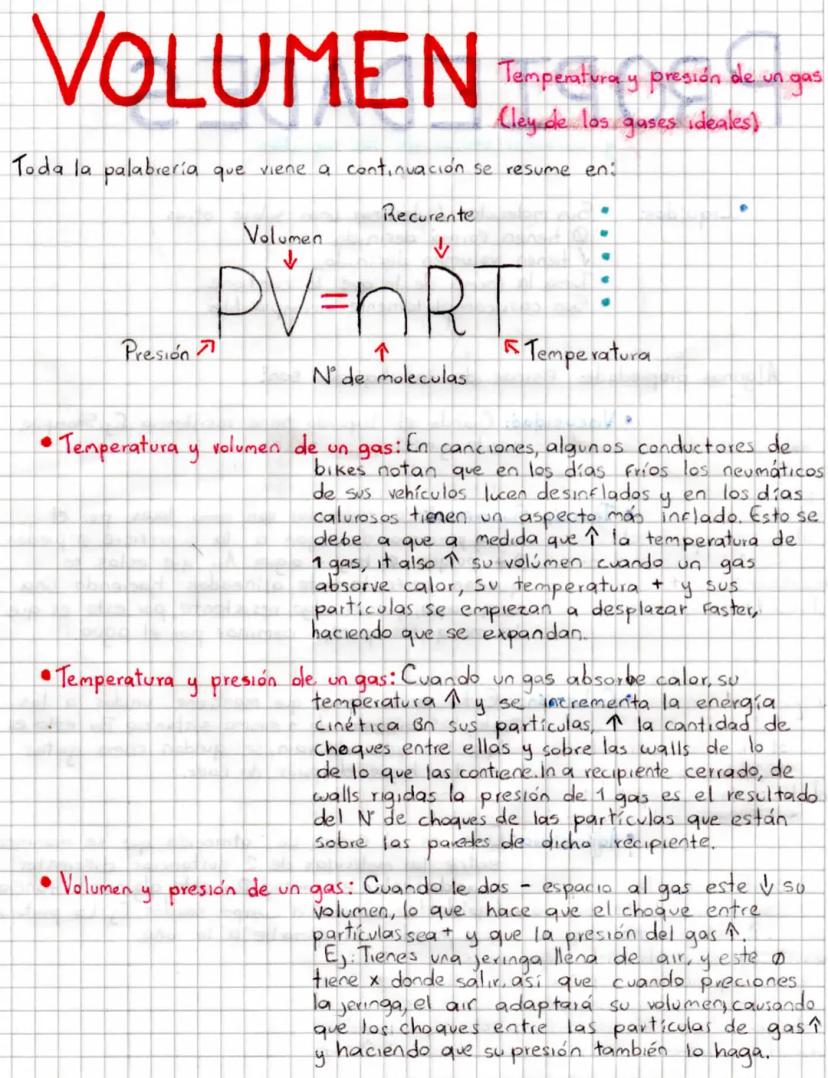 VOLUMEN
Temperatura y presión de un gas
(ley de los gases ideales)
Toda la palabrería que viene a continuación se resume en:
Recurente
Volumen
PV=nRT
Presión
Temperatura
N° de moleculas
• Temperatura y volumen de un gas: En canciones, algunos conductores de
bikes notan que en los días fríos los neumáticos
de sus vehículos lucen desinflados y en los días
calurosos tienen un aspecto más inflado. Esto se
debe a que a medida que ↑ la temperatura de
1 gas, it also ↑ su volúmen cuando un gas
absorve calor, su temperatura + y sus
partículas se empiezan a desplazar faster,
haciendo que se expandan.
• Temperatura y presión de un gas: Cuando un gas absorbe calor, su
temperatura ↑ y se incrementa la energía
cinética en sus partículas, ↑ la cantidad de
choques entre ellas y sobre las walls de lo
de lo que las contiene. In a recipiente cerrado, de
walls rigidas la presión de 1 gas es el resultado
del N° de choques de las partículas que están
sobre las paredes de dicho recipiente.
• Volumen y presión de un gas: Cuando le das - espacio al gas este ↓ su
volumen, lo que hace que el choque entre
partículas sea + y que la presión del gas ↑.
Ej: Tienes una jeringa llena de air, y este ∅
tiene x donde salir, así que cuando preciones
la jeringa, el air adaptará su volumen, causando
que los choques entre las partículas de gas ↑
y haciendo que su presión también lo haga.